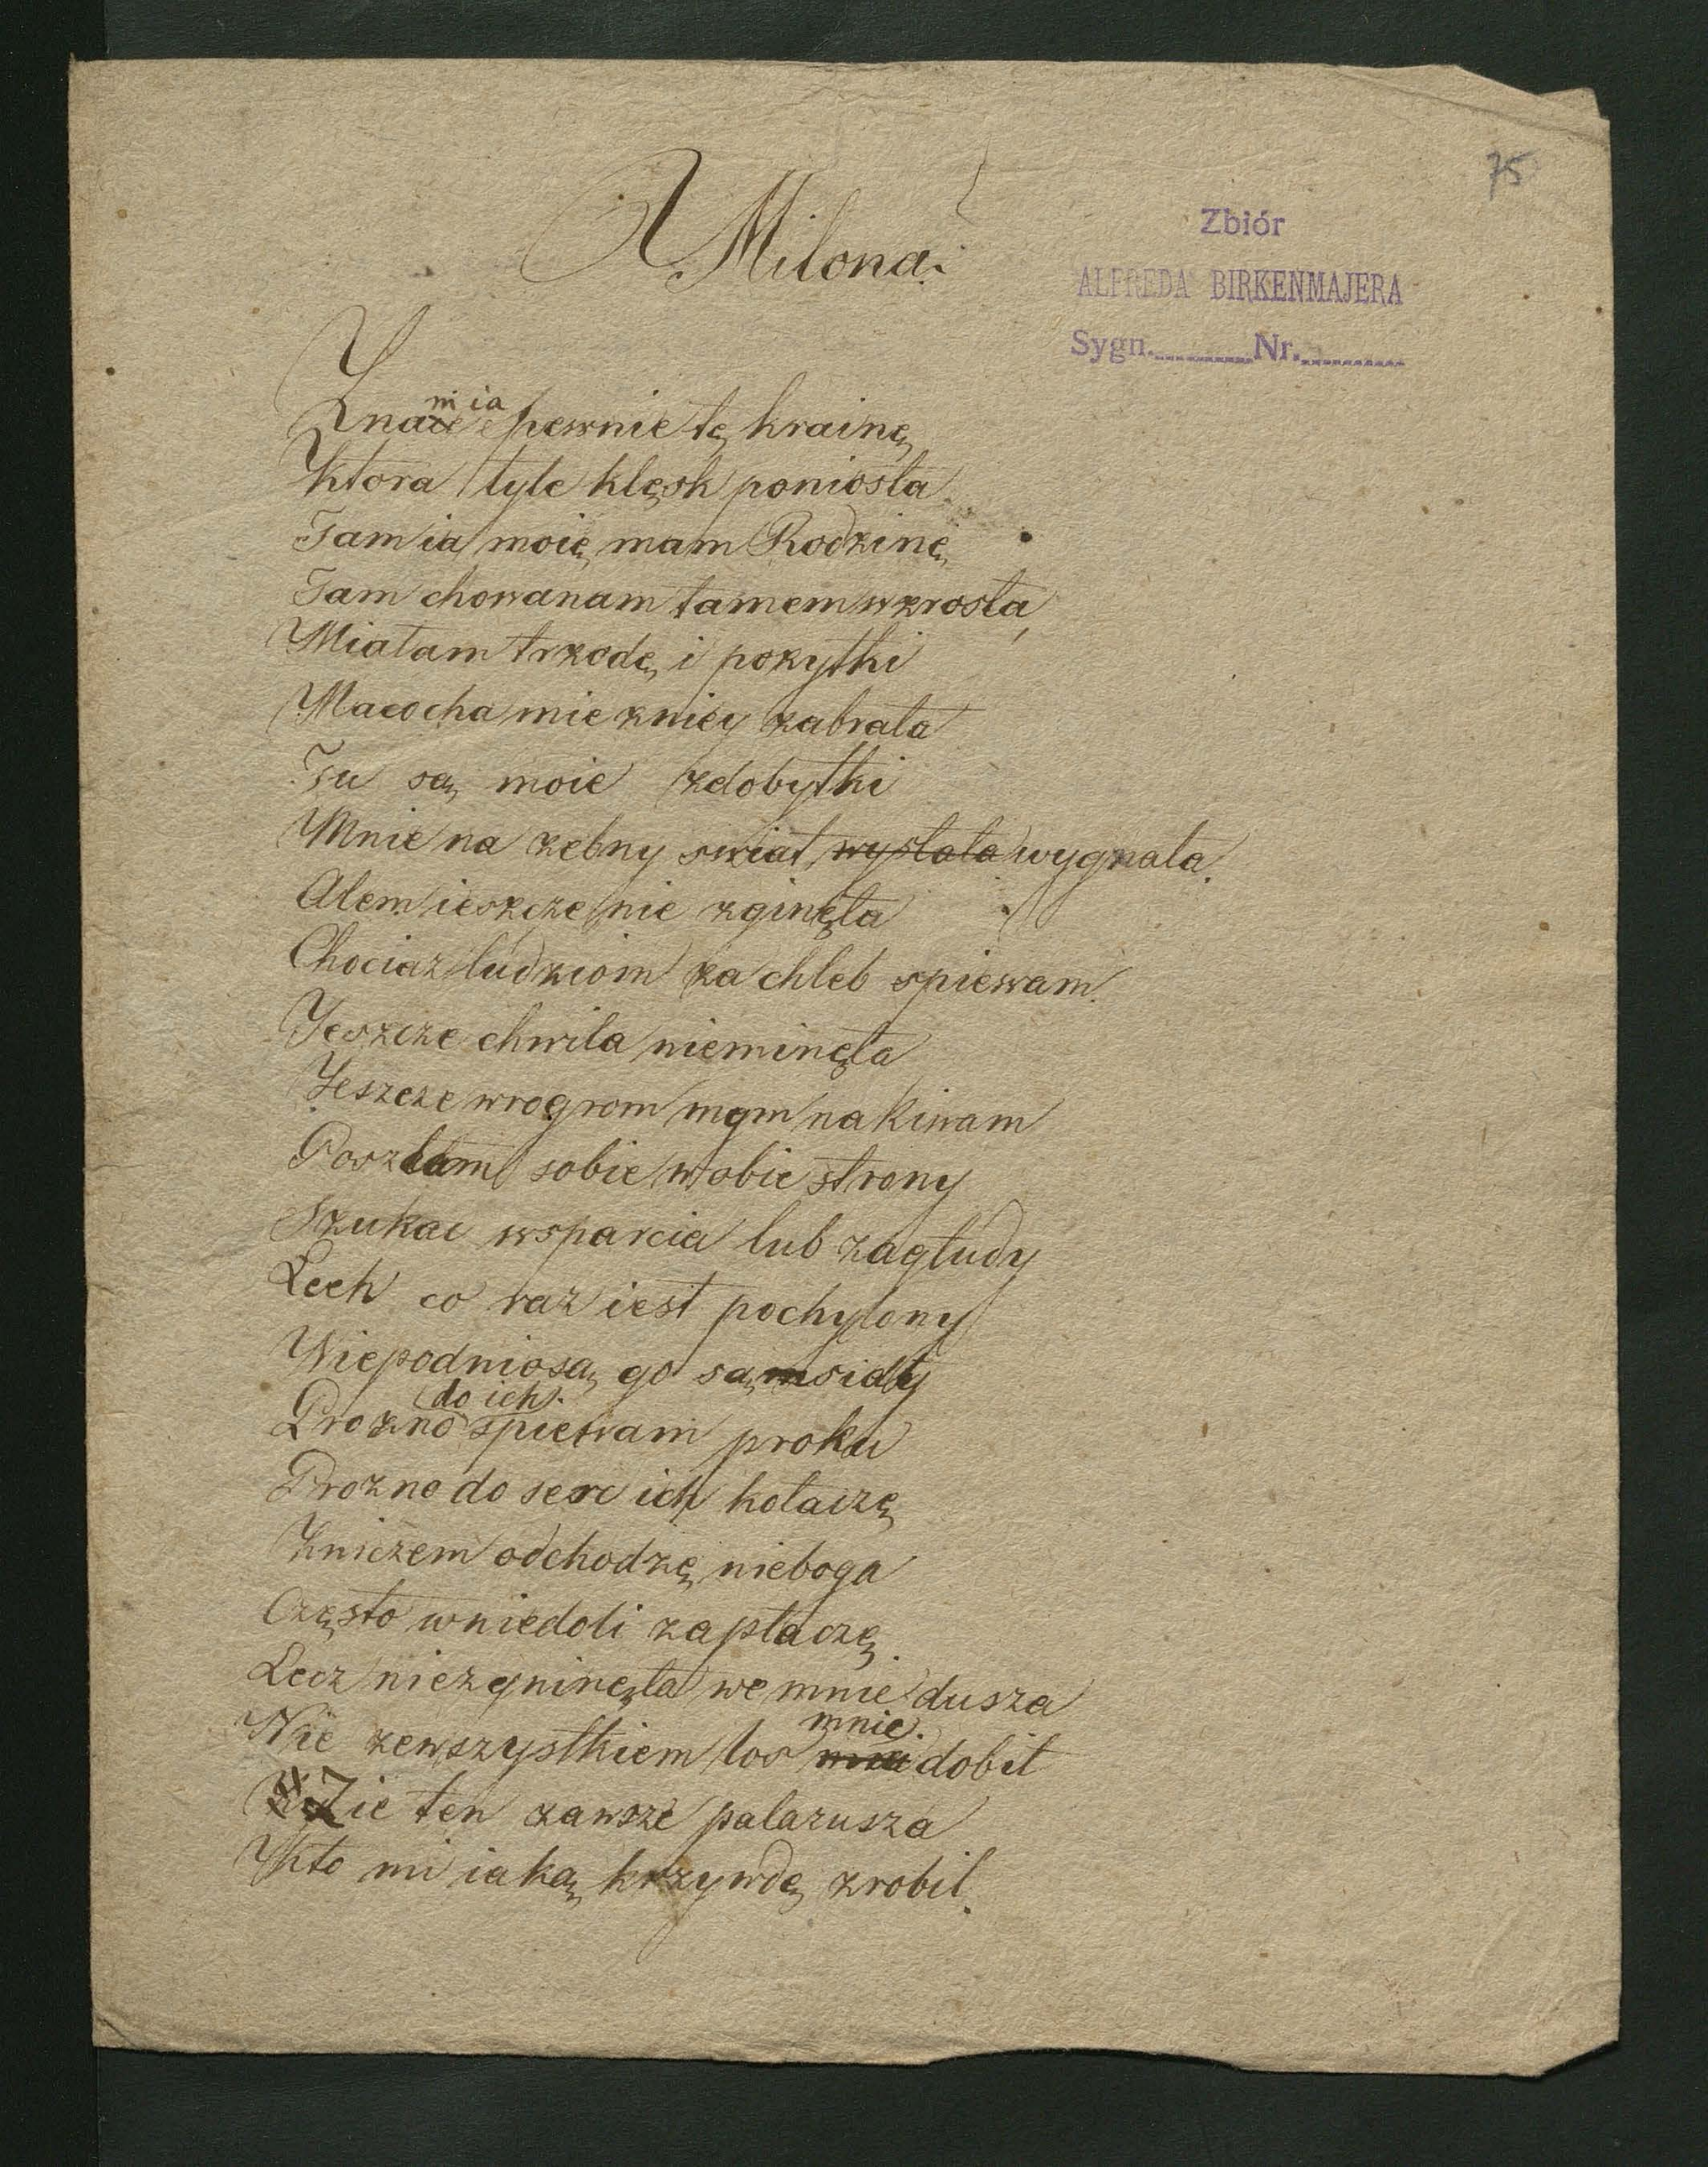 75
Zbiór
ALFREDA BIRKENMAJERA
Sygn. Nr.
A Milona.
Znam ia pewnie tę krainę
Ktora tyle klęsk poniosła
Tam ia moię mam Rodzinę
Tam chowanam tamem wzrosła
Miałam trzodę i pozytki
Macocha mie zniey zabrała
Tu są moie zdobytki
Mnie na zebny swiat wysłała wygnała.
Alem ieszcze nie zginęła
Chociaz ludziom za chleb spiewam.
Jeszcze chwila nieminęła
Jeszcze wrogrom mym nakiwam
Poszłam sobie w obie strony
Szukac wsparcia lub zagłudy
Lech co raz iest pochylony
Niepodniosą go sąmsidy
do ich
Prozno spiewam proku
Prozno do serc ich kołaczę
Zniczem odchodzę nieboga
Często wniedoli zapłaczę.
Lecz niezgninęła we mnie dusza
mnie.
Nie zewszystkiem los dobił
Zie ten zawsze palazusza
Kto mi iaką krzywdę zrobił.